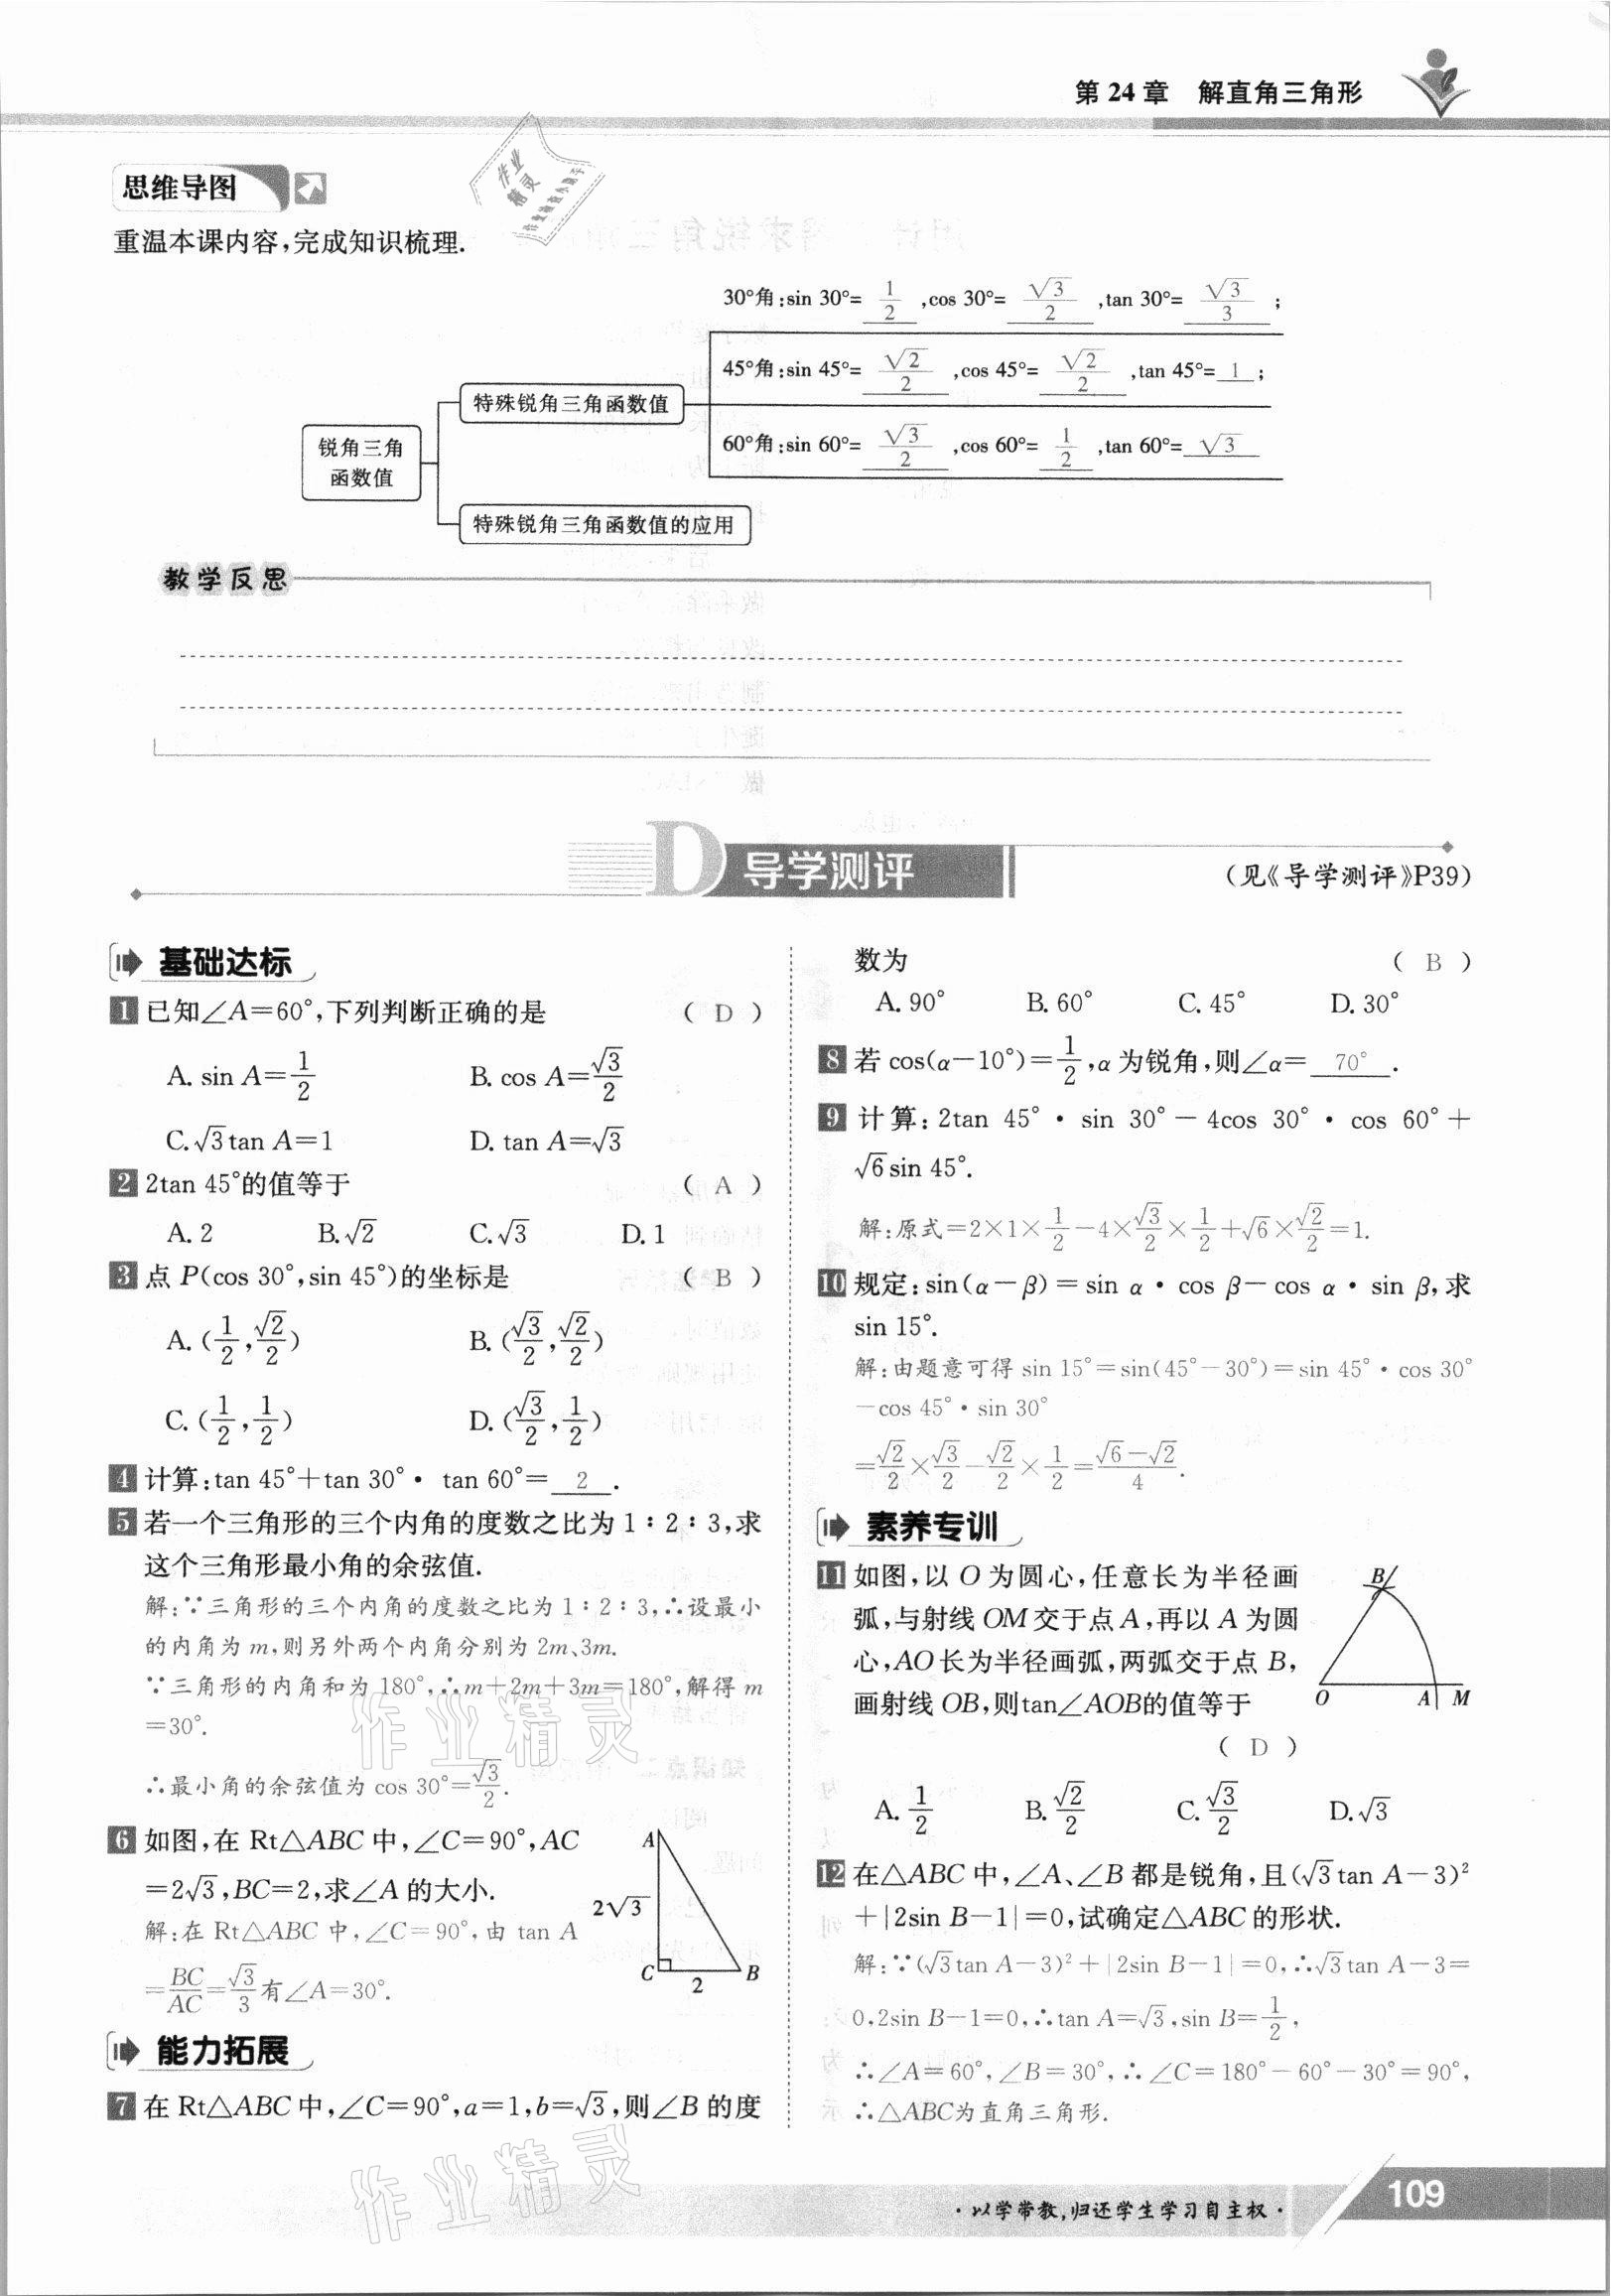 第 24 章　解直角三角形
思维导图
重温本课内容,完成知识梳理.
30°角:sin 30°= 1/2 ,cos 30°= √3/2 ,tan 30°= √3/3 ;
45°角:sin 45°= √2/2 ,cos 45°= √2/2 ,tan 45°= 1 ;
特殊锐角三角函数值
60°角:sin 60°= √3/2 ,cos 60°= 1/2 ,tan 60°= √3
锐角三角
函数值
特殊锐角三角函数值的应用
教学反思
D 导学测评
(见《导学测评》P39)
基础达标
1 已知∠A=60°,下列判断正确的是 ( D )
A. sin A=1/2 B. cos A=√3/2
C. √3tan A=1 D. tan A=√3
2 2tan 45°的值等于 ( A )
A. 2 B. √2 C. √3 D. 1
3 点 P(cos 30°,sin 45°)的坐标是 ( B )
A. (1/2,√2/2) B. (√3/2,√2/2)
C. (1/2,1/2) D. (√3/2,1/2)
4 计算:tan 45°+tan 30°· tan 60°= 2 .
5 若一个三角形的三个内角的度数之比为 1∶2∶3,求
这个三角形最小角的余弦值.
解:∵三角形的三个内角的度数之比为 1∶2∶3,∴设最小
的内角为 m,则另外两个内角分别为 2m、3m.
∵三角形的内角和为 180°,∴m+2m+3m=180°,解得 m
=30°.
∴最小角的余弦值为 cos 30°=√3/2.
6 如图,在 Rt△ABC 中,∠C=90°,AC
=2√3,BC=2,求∠A 的大小.
解:在 Rt△ABC 中,∠C=90°,由 tan A
=BC/AC=√3/3有∠A=30°.
A
2√3
C
2
B
能力拓展
7 在 Rt△ABC 中,∠C=90°,a=1,b=√3,则∠B 的度
数为 ( B )
A. 90° B. 60° C. 45° D. 30°
8 若 cos(α-10°)=1/2,α 为锐角,则∠α= 70° .
9 计算: 2tan 45° · sin 30° - 4cos 30° · cos 60° +
√6sin 45°.
解:原式=2×1×1/2-4×√3/2×1/2+√6×√2/2=1.
10 规定:sin(α-β)=sin α· cos β-cos α· sin β,求
sin 15°.
解:由题意可得 sin 15°=sin(45°-30°)=sin 45°·cos 30°
-cos 45°·sin 30°
=√2/2×√3/2-√2/2×1/2=(√6-√2)/4.
素养专训
11 如图,以 O 为圆心,任意长为半径画
弧,与射线 OM 交于点 A,再以 A 为圆
心,AO 长为半径画弧,两弧交于点 B,
画射线 OB,则tan∠AOB的值等于
( D )
B
O
A
M
A. 1/2 B. √2/2 C. √3/2 D. √3
12 在△ABC 中,∠A、∠B 都是锐角,且(√3tan A-3)²
+|2sin B-1|=0,试确定△ABC 的形状.
解:∵(√3tan A-3)²+|2sin B-1|=0,∴√3tan A-3=
0,2sin B-1=0,∴tan A=√3,sin B=1/2,
∴∠A=60°,∠B=30°,∴∠C=180°-60°-30°=90°,
∴△ABC为直角三角形.
作业精灵
作业精灵
·以学带教,归还学生学习自主权·
109